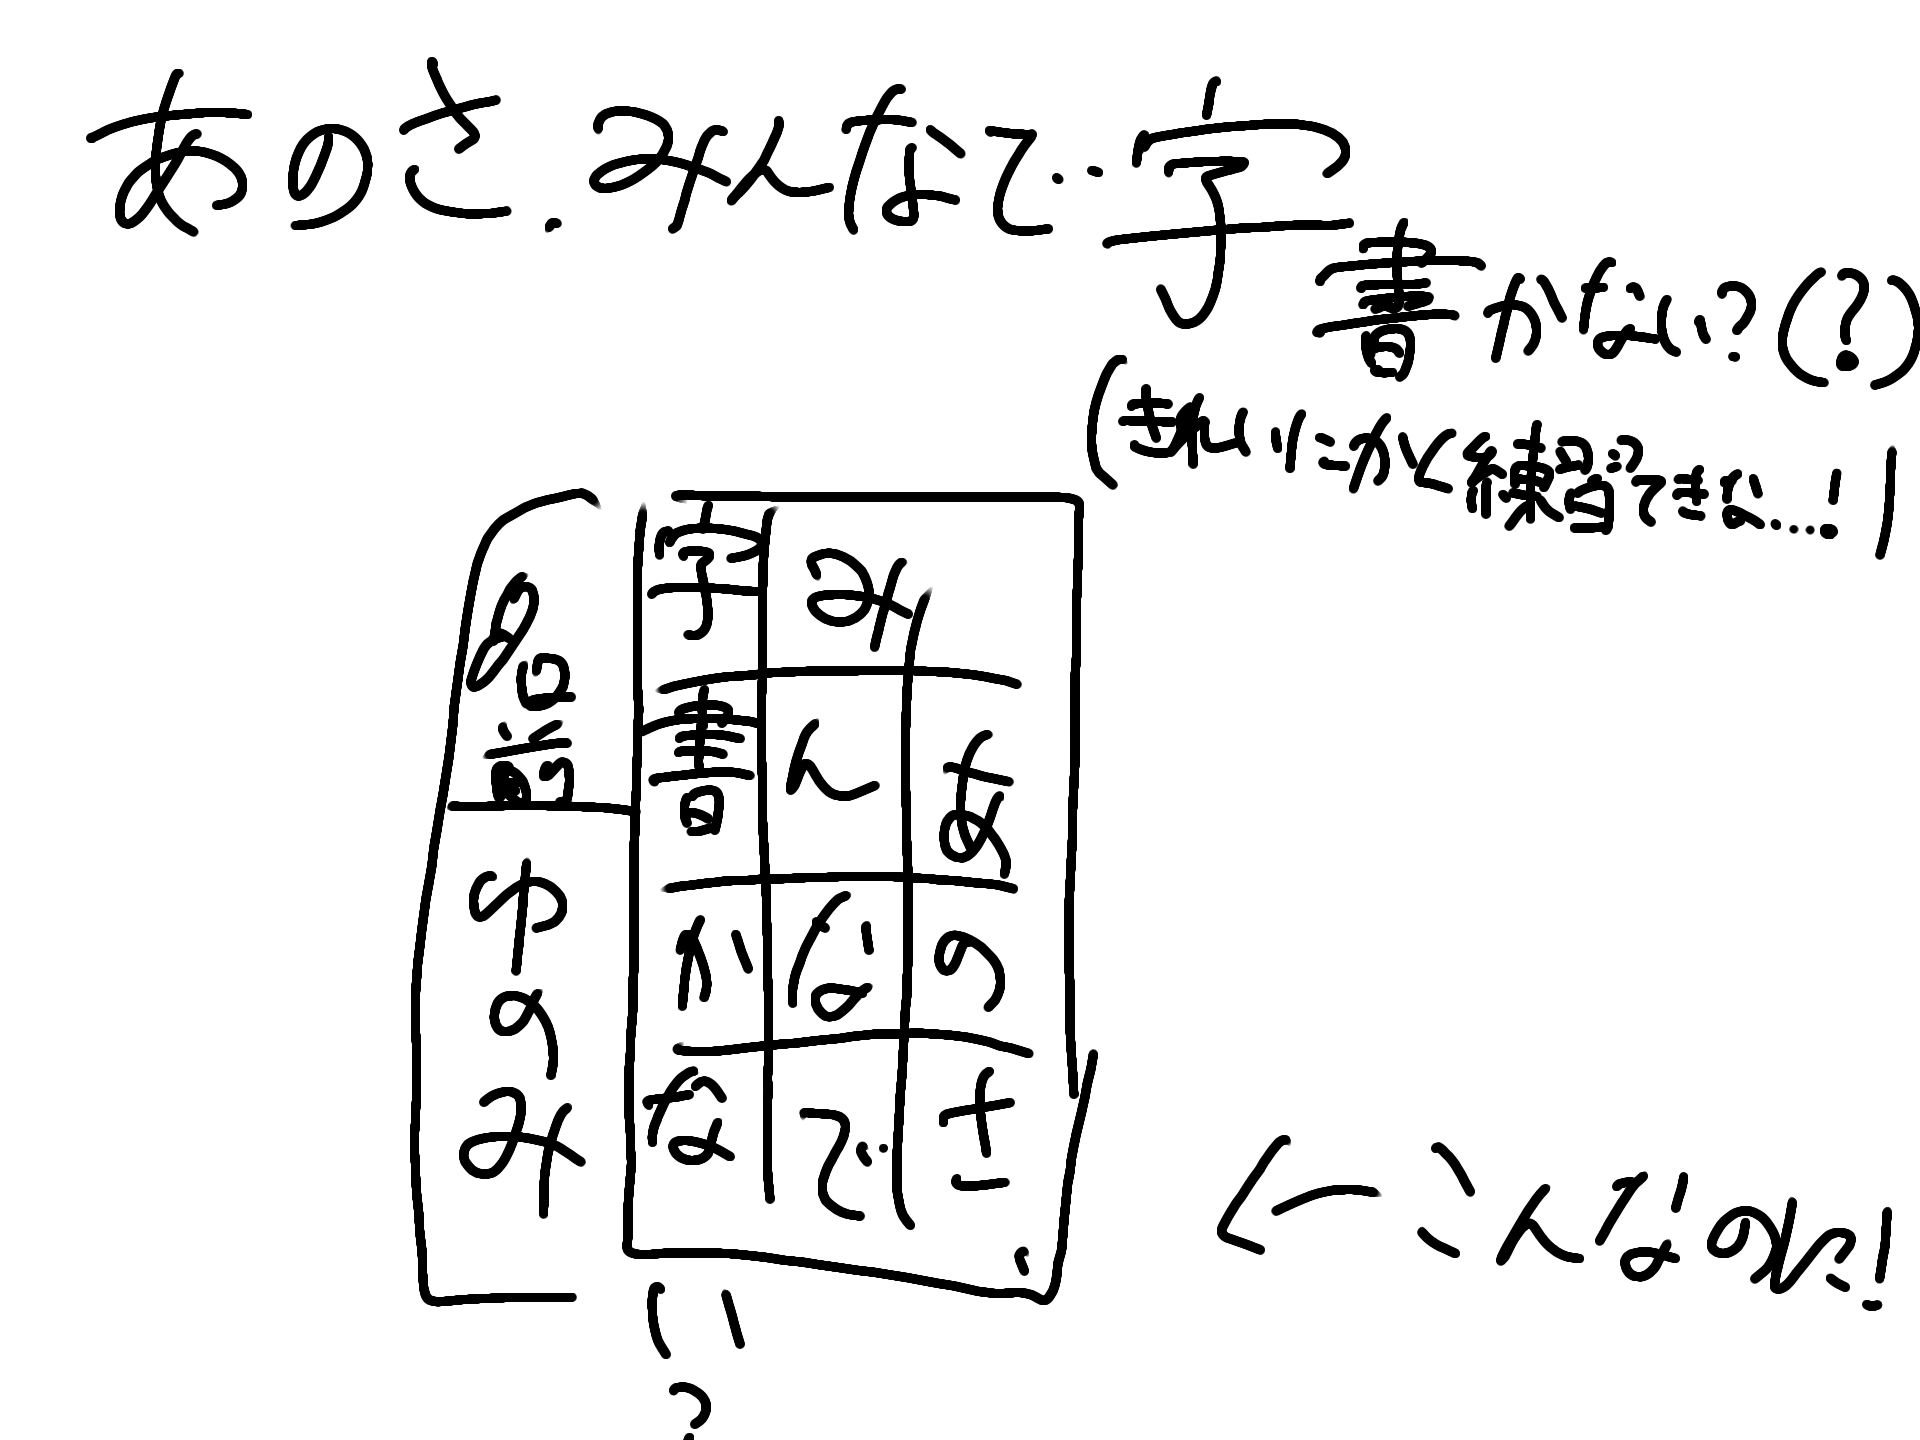 あのさ.みんなで字
書かない?(?)
(きれいにかく練習できな....!)
あのさ、
みんなで
字書かない?
名前
ゆのみ
←こんなのね!